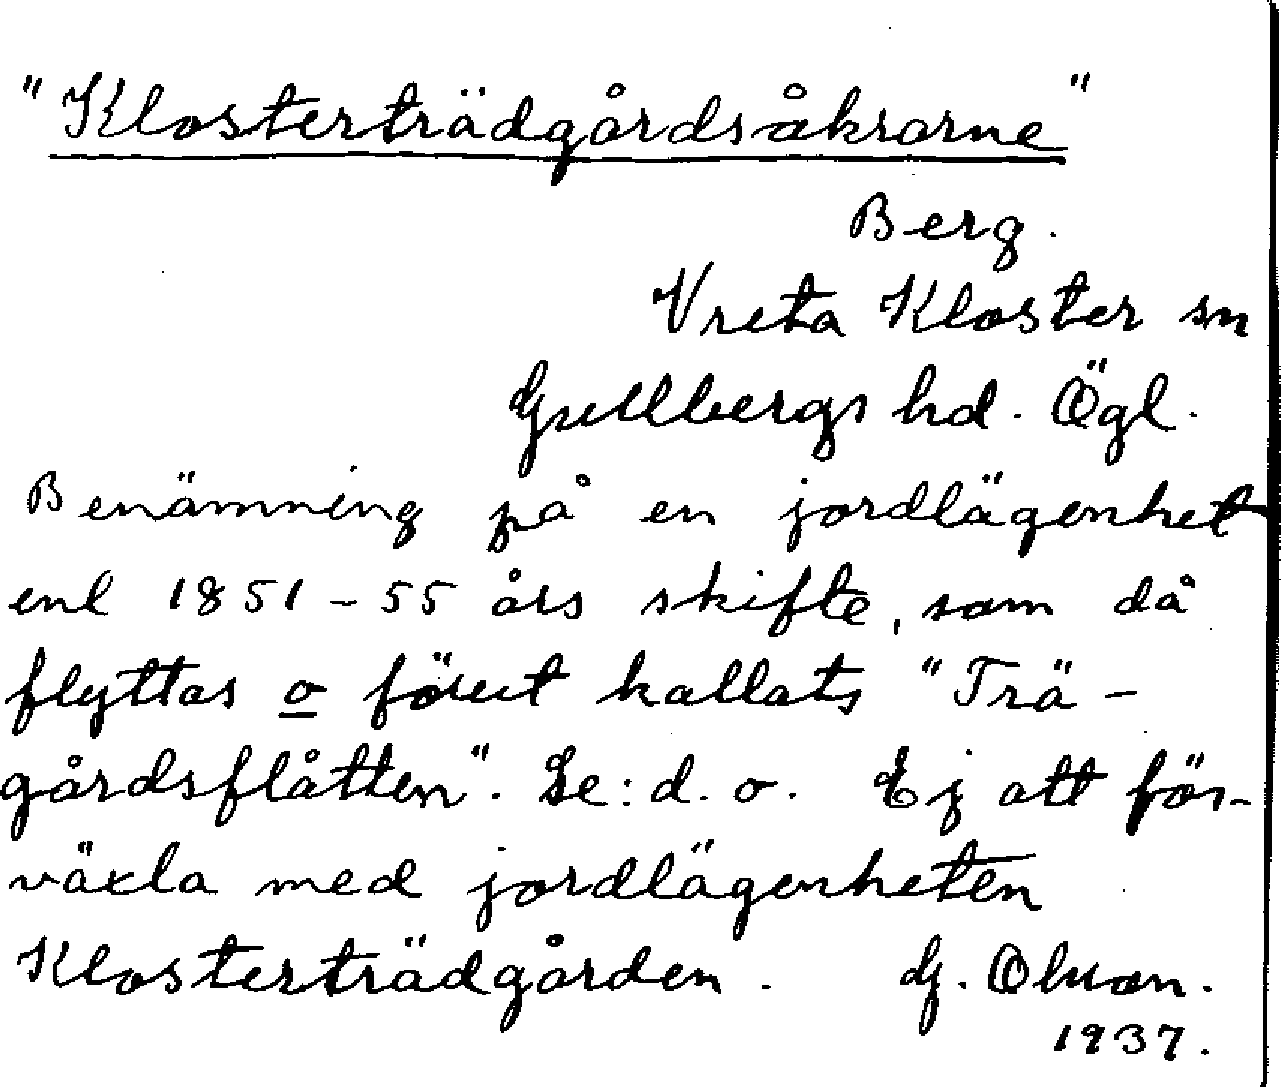 "Klosterträdgårdsåkrarne"
Berg.
Vreta Kloster sn
Gullbergs hd. Ögl.
Benämning på en jordlägenhet
enl 1851-55 års skifte, som då
flyttas o förut kallats "Trä-
gårdsflåtten". Se: d. o. Ej att för-
växla med jordlägenheten
Klosterträdgården. G. Olsson.
1937.